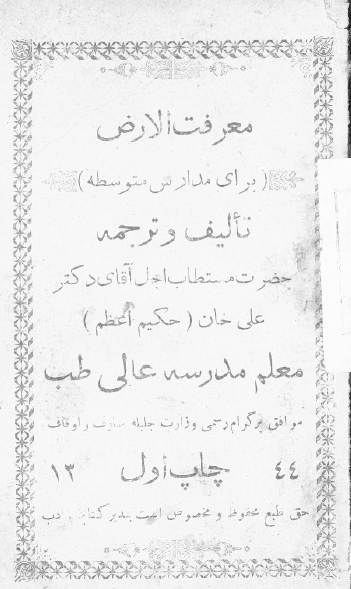 معرفت‌الارض
(برای مدارس متوسطه)
تألیف و ترجمه
حضرت مستطاب اجل آقای دکتر
علی خان (حکیم اعظم)
معلم مدرسه عالی طب
موافق پرگرام رسمی وزارت جلیله معارف و اوقاف
٤٤ چاپ اول ١٣
حق طبع محفوظ و مخصوص است بمدیر کتابخانه ادب